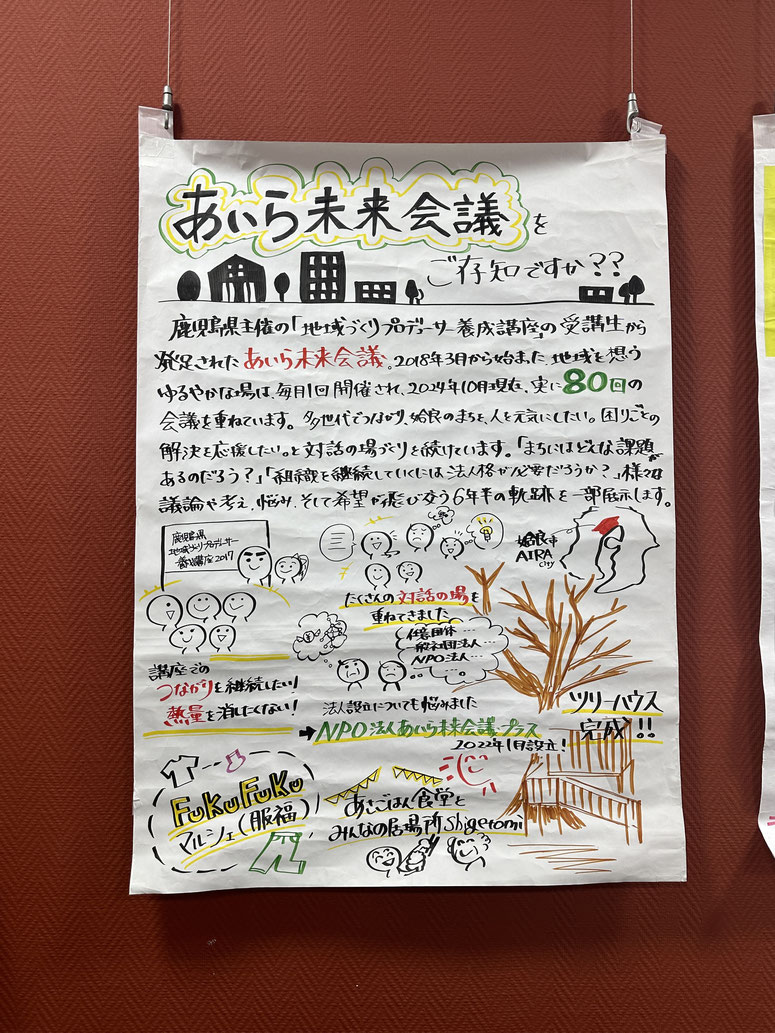 あいら未来会議を
ご存知ですか??
鹿児島県主催の「地域づくりプロデューサー養成講座」の受講生から
発足されたあいら未来会議。2018年3月から始まった、地域を想う
ゆるやかな場は、毎月1回開催され、2024年10月現在、実に80回の
会議を重ねています。多世代でつながり、姶良のまちを、人を元気にしたい。困りごとの
解決を応援したい。と対話の場づくりを続けています。「まちにはどんな課題が
あるのだろう?」「組織を継続していくには法人格が必要だろうか?」様々な
議論や考え、悩み、そして希望が飛び交う6年半の軌跡を一部展示します。
鹿児島県
地域づくりプロデューサー
養成講座2017
姶良市
AIRA
city
たくさんの対話の場を
重ねてきました
任意団体…
一般社団法人…
NPO法人…
講座での
つながりを継続したい!
熱量を消したくない!
法人設立についても悩みました
➡NPO法人あいら未来会議プラス
2022年1月設立!
ツリーハウス
完成!!
FuKuFuKu
マルシェ(服福)
あさごはん食堂と
みんなの居場所Shigetomi